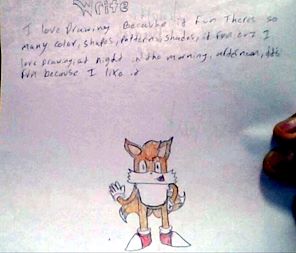 Write
I love Drawing Because it fun Theres so
many color, shapes, patterns, shades, it fun and I
love drawing, at night in the morning, afternoon,
fun because I like it